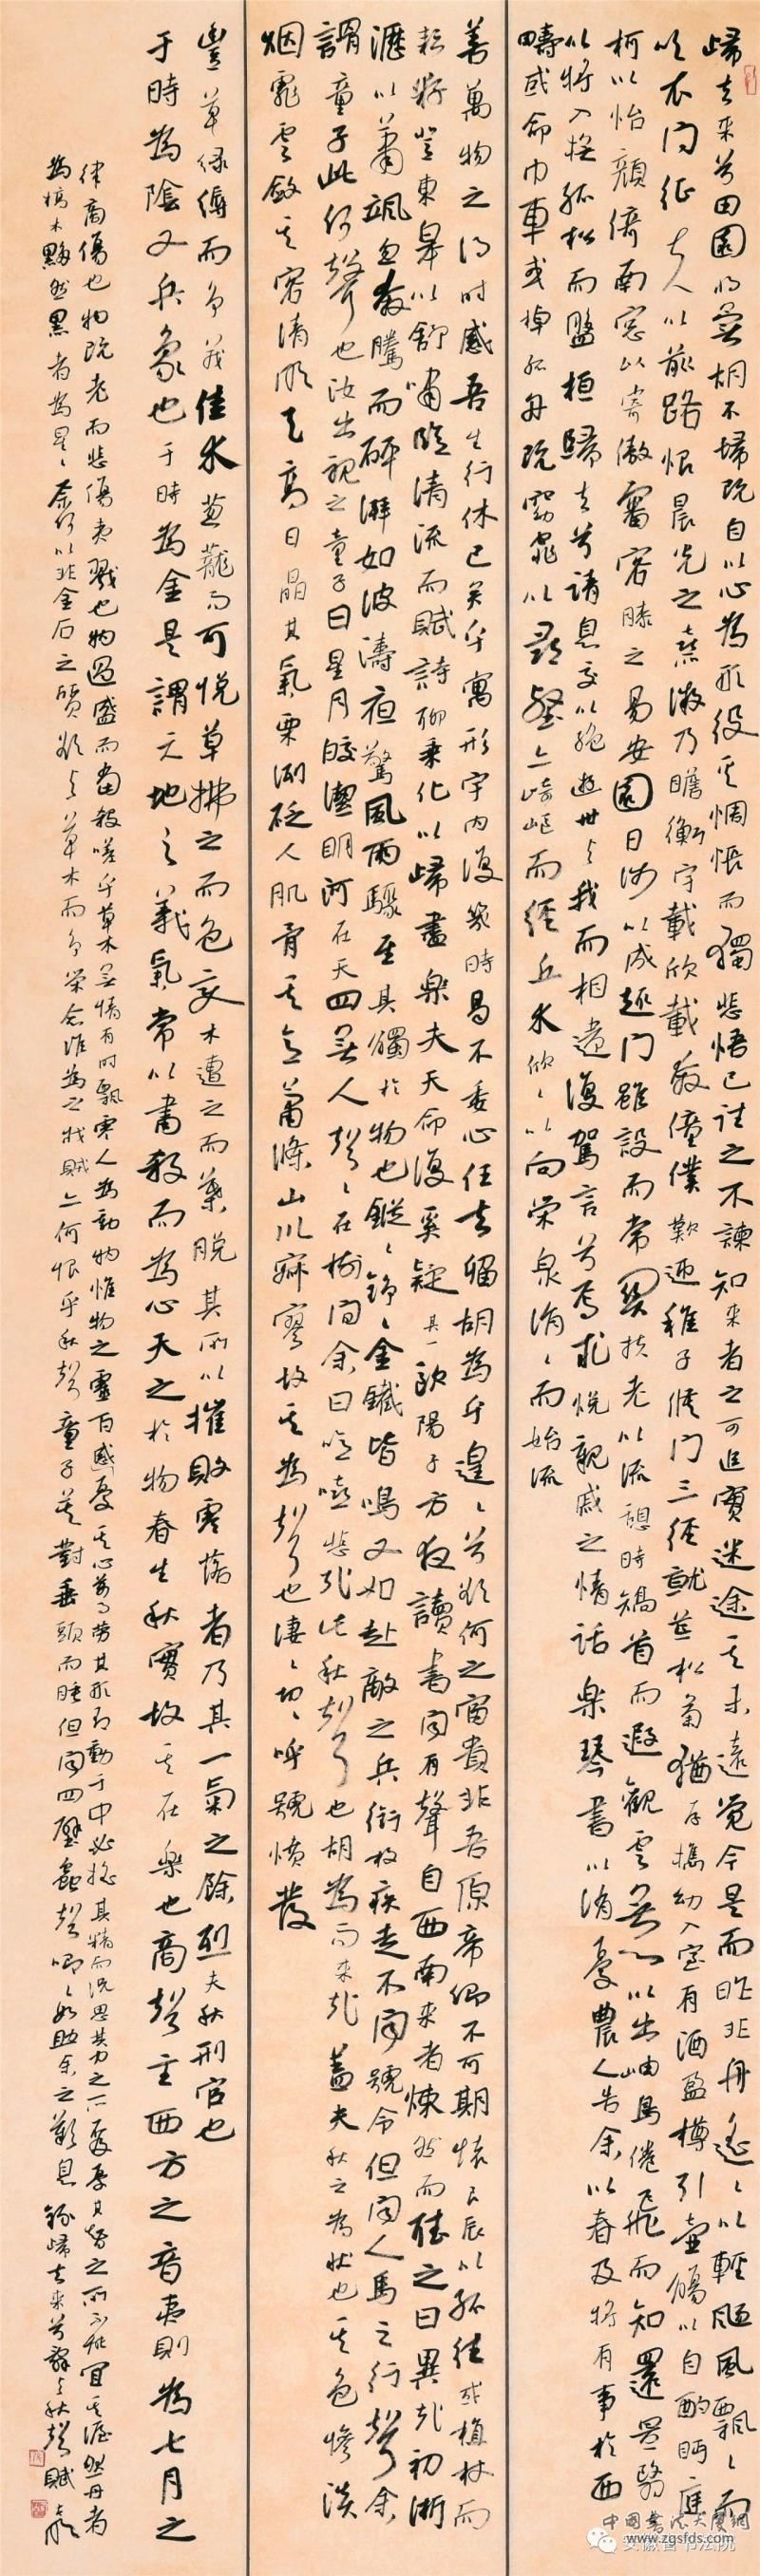 歸去來兮田園將蕪胡不歸既自以心為形役奚惆悵而獨悲悟已往之不諫知來者之可追實迷途其未遠覺今是而昨非舟遙遙以輕颺風飄飄而
吹衣問征夫人以前路恨晨光之熹微乃瞻衡宇載欣載奔僮僕歡迎稚子候門三徑就荒松菊猶存攜幼入室有酒盈樽引壺觴以自酌眄庭
柯以怡顏倚南窗以寄傲審容膝之易安園日涉以成趣門雖設而常關扶老以流憩時矯首而遐觀雲無心以出岫鳥倦飛而知還景翳翳
以將入撫孤松而盤桓歸去兮請息交以絕遊世與我而相遺復駕言兮焉求悅親戚之情話樂琴書以消憂農人告余以春及將有事於西
疇或命巾車或棹孤舟既窈窕以尋壑亦崎嶇而經丘木欣欣以向榮泉涓涓而始流
善萬物之得時感吾生行休已矣乎寓形宇內復幾時曷不委心任去留胡為乎遑遑兮欲何之富貴非吾願帝鄉不可期懷良辰以孤往或植杖而
耘耔登東皋以舒嘯臨清流而賦詩聊乘化以歸盡樂夫天命復奚疑其一歐陽子方夜讀書聞有聲自西南來者悚然而聽之曰異哉初淅
瀝以蕭颯忽奔騰而砰湃如波濤夜驚風雨驟至其觸於物也鏦鏦錚錚金鐵皆鳴又如赴敵之兵銜枚疾走不聞號令但聞人馬之行聲余
謂童子此何聲也汝出視之童子曰星月皎潔明河在天四無人聲聲在樹間余曰噫嘻悲哉此秋聲也胡為而來哉蓋夫秋之為狀也其色慘淡
烟霏雲斂其容清明天高日晶其氣栗冽砭人肌骨其意蕭條山川寂寥故其為聲也淒淒切切呼號憤發
豐草綠縟而爭茂佳木蔥蘢而可悅草拂之而色變木遭之而葉脫其所以摧敗零落者乃其一氣之餘烈夫秋刑官也
于時為陰又兵象也于時為金是謂天地之義氣常以肅殺而為心天之於物春生秋實故其在樂也商聲主西方之音夷則為七月之
律商傷也物既老而悲傷夷戮也物過盛而當殺嗟乎草木無情有時飄零人為動物惟物之靈百感憂其心萬事勞其形有動于中必搖其精而況思其力之所不及憂其智之所不能宜其渥然丹者
為槁木黟然黑者為星星奈何以非金石之質欲與草木而爭榮念誰為之戕賊亦何恨乎秋聲童子莫對垂頭而睡但聞四壁蟲聲唧唧如助余之歎息 錄歸去來兮辭與秋聲賦
中國書法大廈網
www.zgsfds.com
安徽省書法院